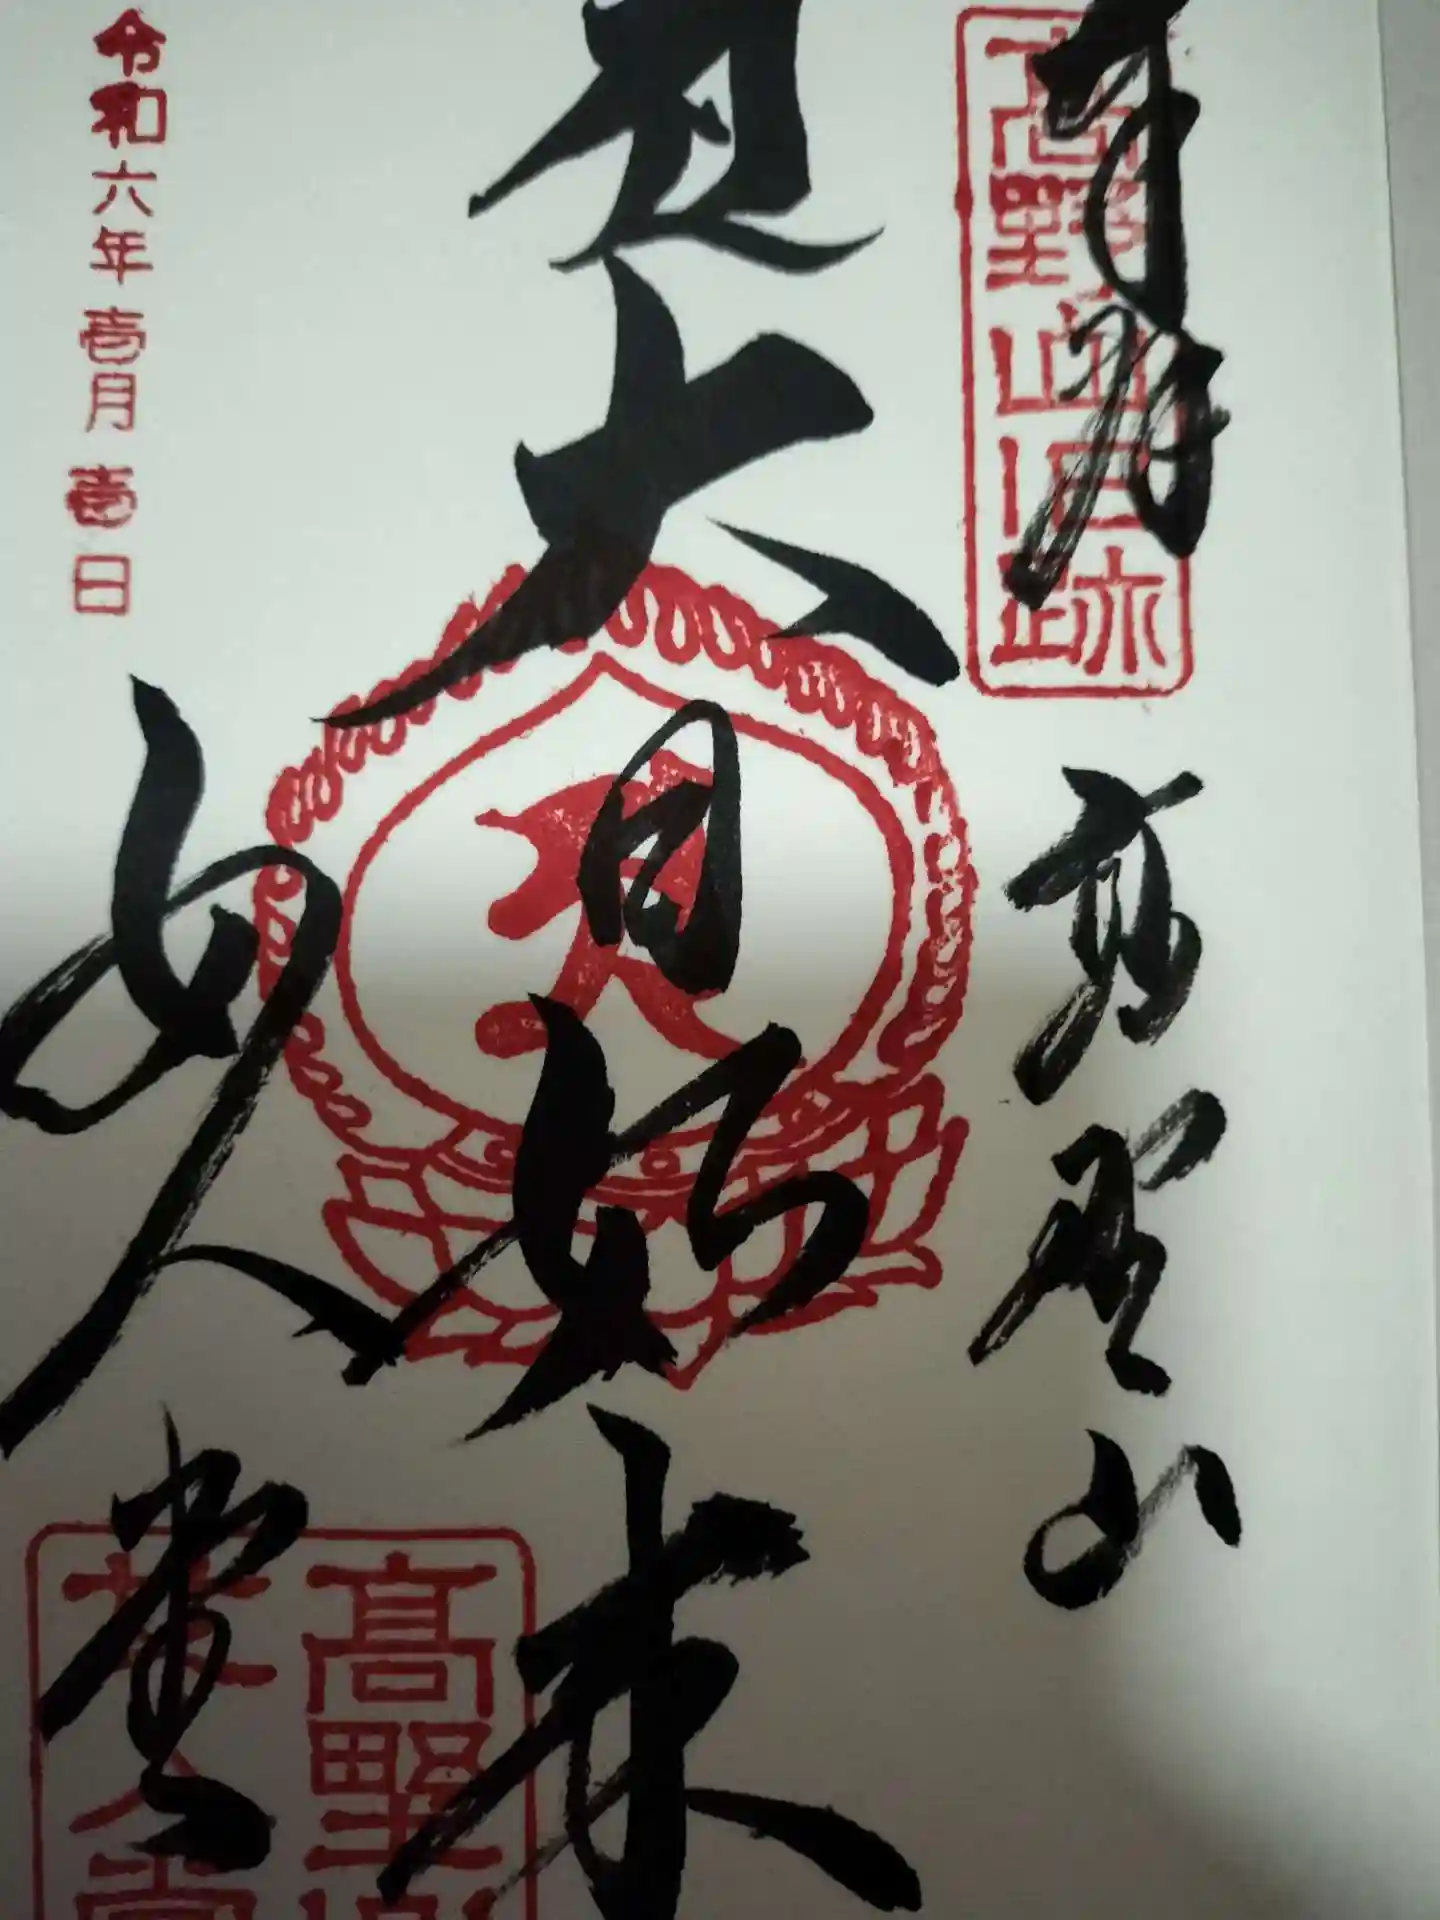 奉拝
高野山旧跡
高野山
大日如来
令和六年壹月壹日
女人堂
高野山
女人堂